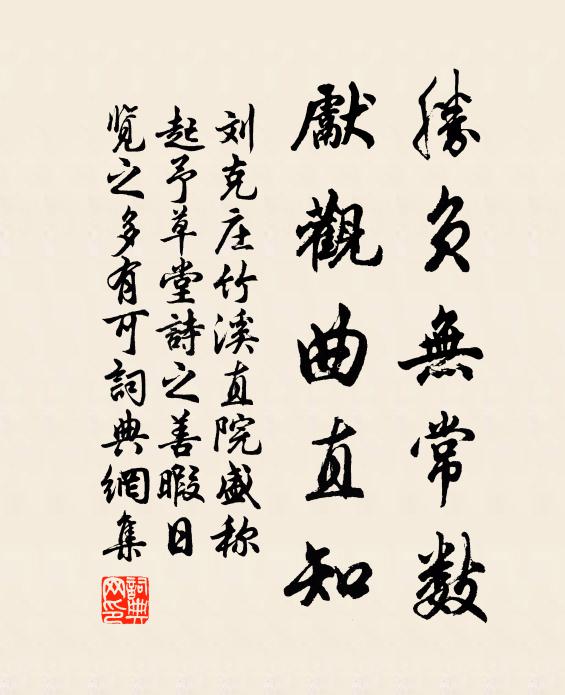 勝負無常数
獻觀曲直知
刘克庄竹溪直院盛称
起予草堂詩之善暇日
览之多有可詞典網集
詞典网印